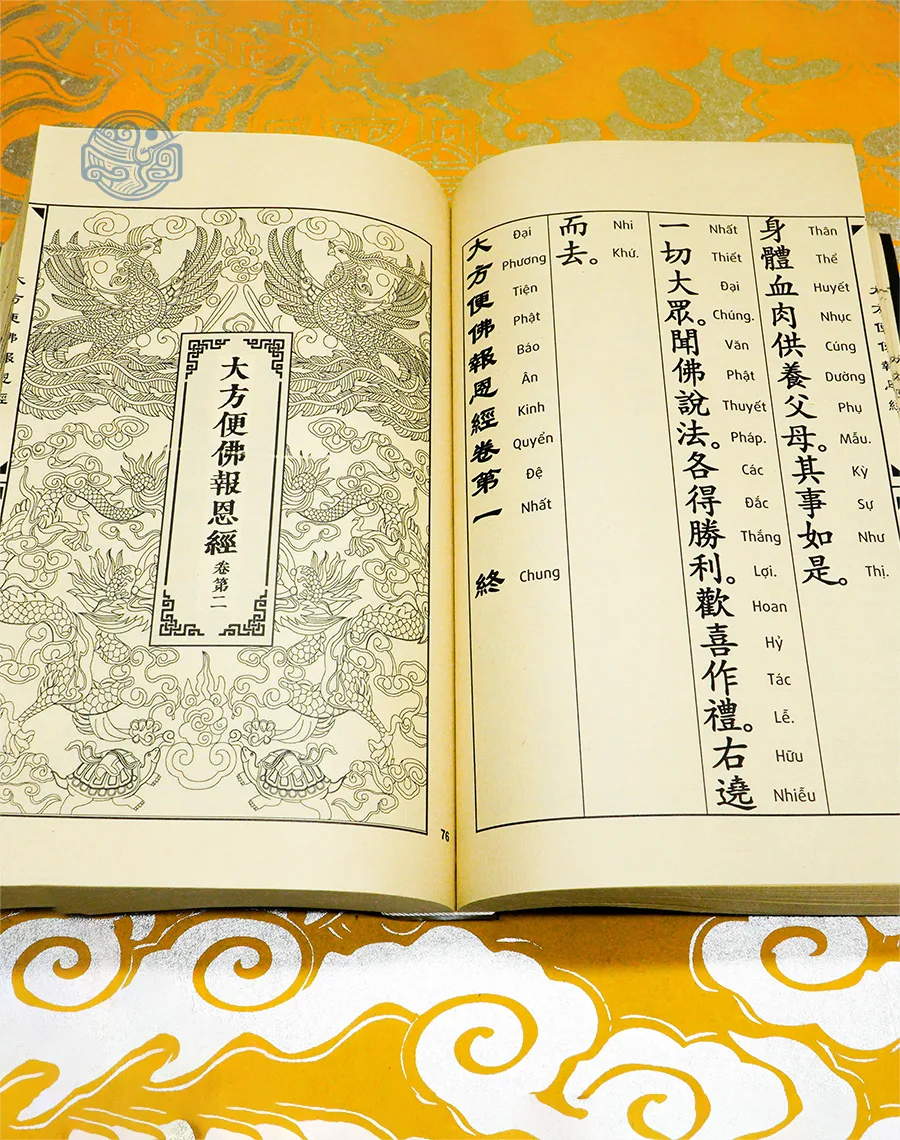 身體血肉供養父母。其事如是。
Thân Thể Huyết Nhục Cúng Dường Phụ Mẫu. Kỳ Sự Như Thị.
一切大眾。聞佛說法。各得勝利。歡喜作禮。右遶
Nhất Thiết Đại Chúng. Văn Phật Thuyết Pháp. Các Đắc Thắng Lợi. Hoan Hỷ Tác Lễ. Hữu Nhiễu
而去。
Nhi Khứ.
大方便佛報恩經卷第一 終
Đại Phương Tiện Phật Báo Ân Kinh Quyển Đệ Nhất Chung
大方便佛報恩經
卷第二
大方便佛報恩經
76